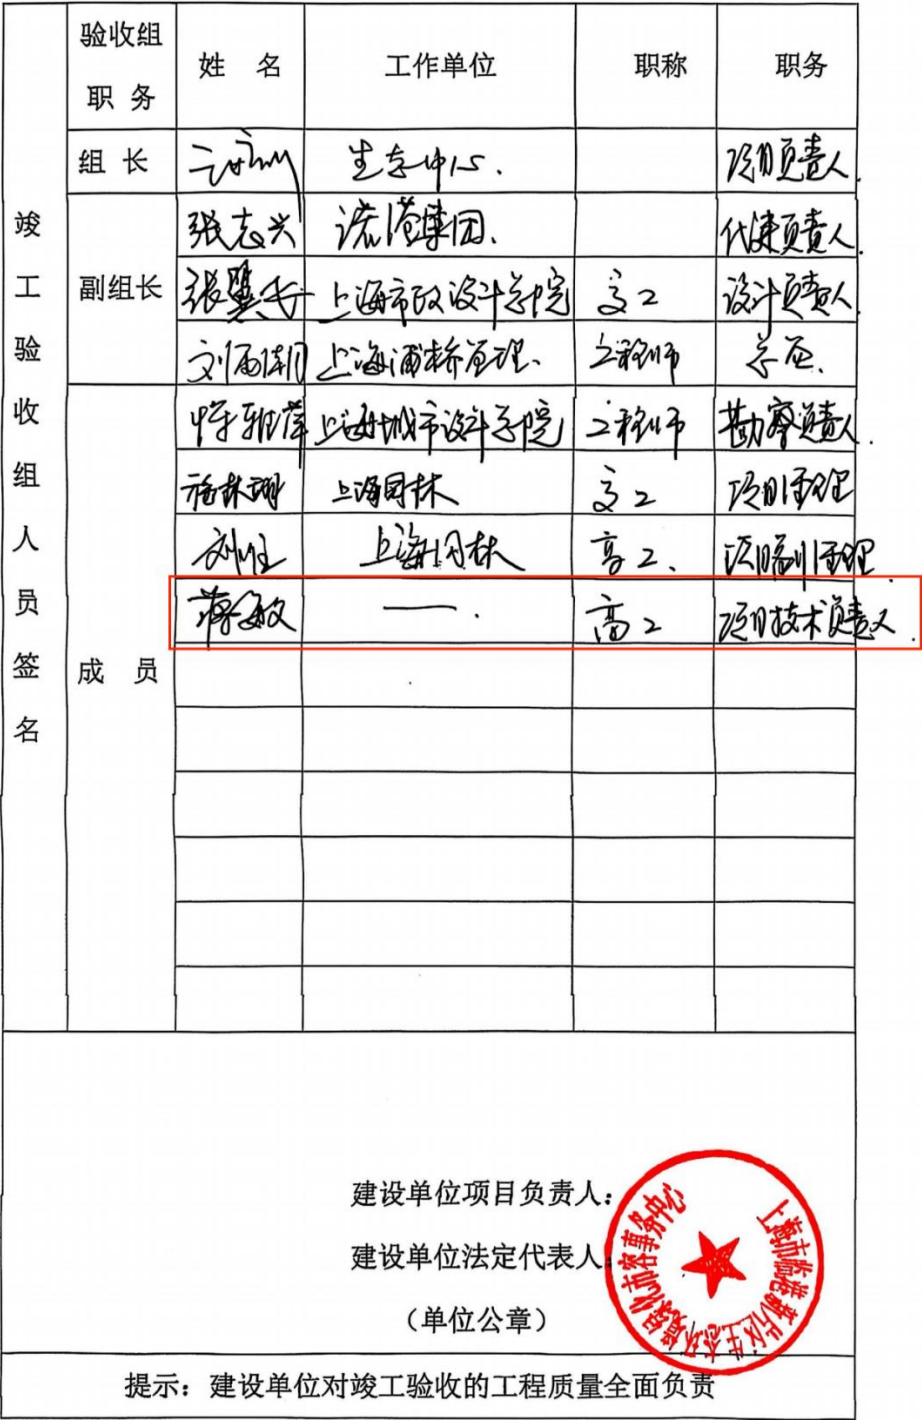 竣工验收组人员签名
验收组职务 姓 名 工作单位 职称 职务
组 长 生态中心. 项目负责人.
副组长
张志兴 港集团. 代建负责人.
张翼飞 上海市政设计总院 高工 设计负责人.
刘 上海浦桥管理. 工程师 总监.
成 员
恽雅萍 上海城市设计总院 工程师 勘察负责人.
施林翊 上海园林 高工 项目经理
刘 上海园林 高工. 项目副经理.
蒋敏 —— . 高工 项目技术负责人.
建设单位项目负责人:
建设单位法定代表人:
(单位公章)
上海市临港新片区生态环境绿化市容事务中心
提示: 建设单位对竣工验收的工程质量全面负责